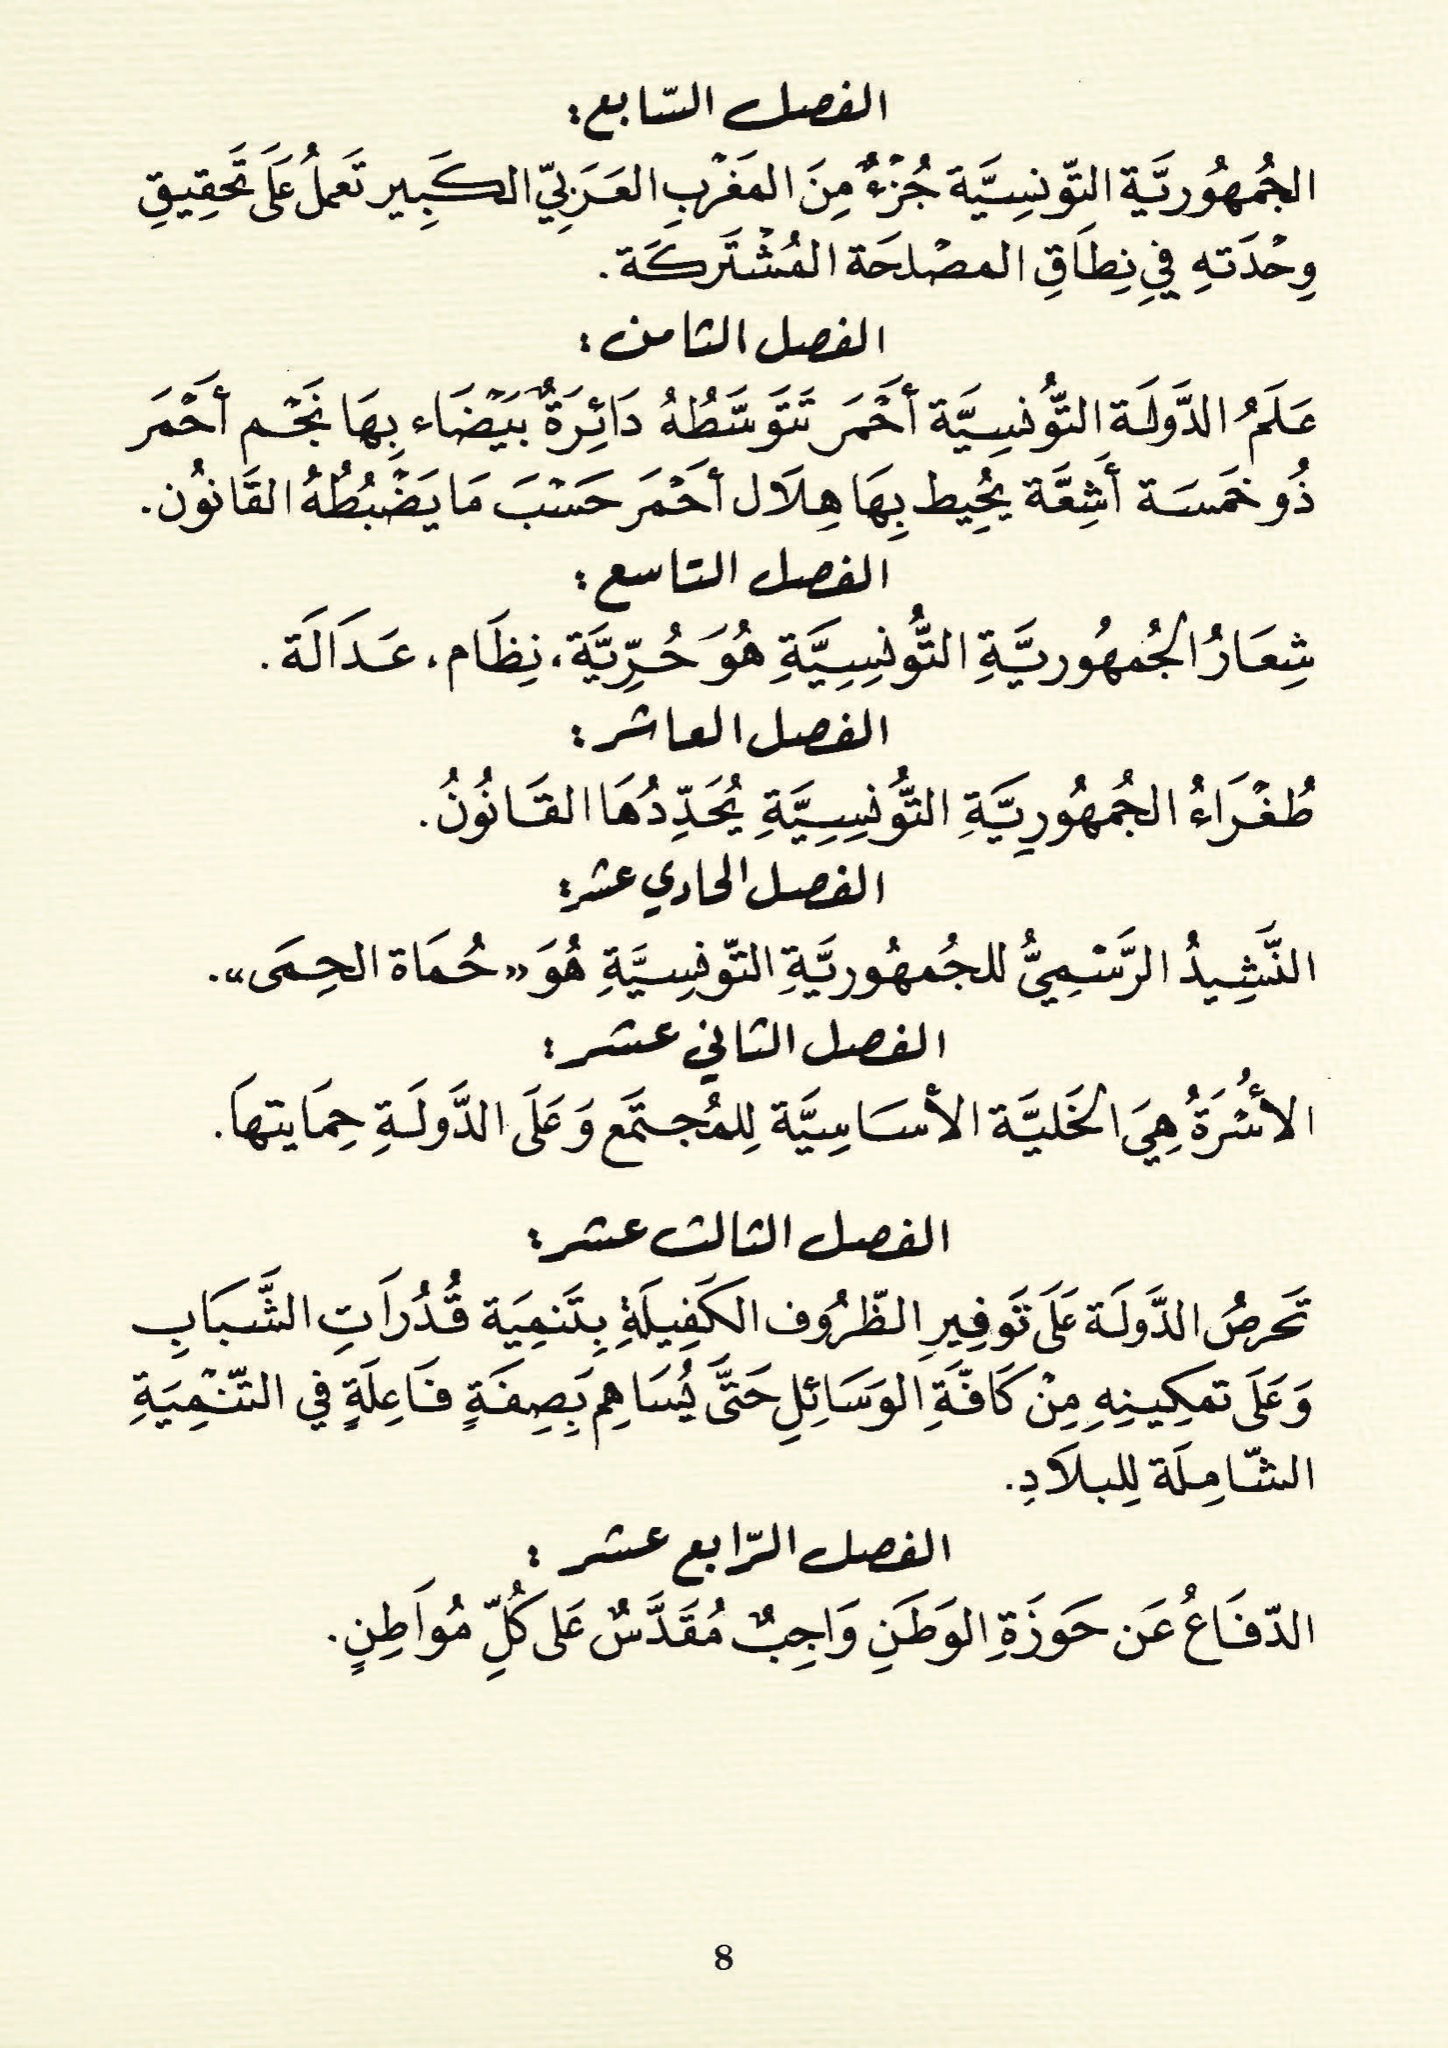 الفصل السّابع:
الجُمهُوريَّة التّونسِيَّة جُزْءٌ مِنَ المَغْرَبِ العَرَبيّ الكَبِير تَعملُ عَلَى تَحقِيقِ
وِحْدَتهِ في نِطَاقِ المصْلحَة المُشْتَركَة.
الفصل الثامن:
عَلَمُ الدَّولَة التُّونُسِيَّة أحْمَر تَتَوَسَّطُهُ دَائِرَةٌ بَيْضَاء بِهَا نَجْم أحْمَر
ذُو خَمسَة أَشِعَّة يحُيِط بِهَا هِلَال أحْمَر حَسْبَ مَا يَضْبُطُهُ القَانوُن.
الفصل التاسع:
شِعَارُ الجُمهُوريَّةِ التُّونِسِيَّةِ هُوَ حُرِّيَّة، نِظَام، عَدَالَة.
الفصل العاشر:
طُغْرَاءُ الجُمهُورِيَّةِ التُّونِسِيَّةِ يُحَدِّدُهَا القَانُونُ.
الفصل الحادي عشر:
النَّشِيدُ الرَّسْمِيُّ للجُمهُوريَّةِ التّونِسِيَّةِ هُوَ «حُمَاة الحِمَى».
الفصل الثاني عشر:
الأسْرَةُ هِيَ الخَليَّة الأسَاسِيَّة لِلمُجتَمَع وَعَلَى الدَّولَةِ حِمَايتهَا.
الفصل الثالث عشر:
تَحرصُ الدَّولَة عَلَى تَوفِيرِ الظّرُوف الكَفِيلَةِ بِتَنمِيَة قُدُرَاتِ الشَّبَابِ
وَعَلَى تمكِينِهِ مِنْ كَافَّةِ الوَسَائِلِ حَتَّى يُسَاهِم بِصِفَةٍ فَاعِلَةٍ في التّنْمِيَةِ
الشّامِلَة لِلبلاَدِ.
الفصل الرّابع عشر:
الدّفَاعُ عَن حَوزَةِ الوَطَنِ وَاجِبٌ مُقَدَّسٌ عَلى كُلِّ مُواَطِنٍ.
8